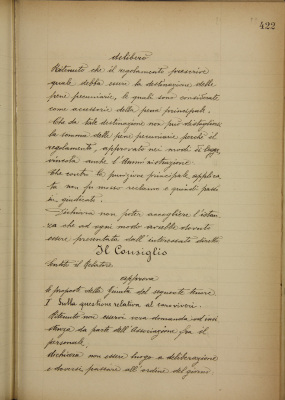 422
deliberò
Ritenuto che il regolamento prescrive
quale debba essere la destinazione delle
pene pecuniarie, le quali sono considerate
come accessorie della pena principale.
Che da tale destinazione non può distogliere
la somma delle pene pecuniarie perché il
regolamento, approvato nei modi di legge
vincola anche l'Amministrazione
Che contro la punizione principale applica
ta non fu mosso reclamo e quindi passò
in giudicato.
Dichiara non poter accogliere l'istan
za che ad ogni modo avrebbe dovuto
essere presentata dall'interessato diretto
Il Consiglio
Udito il Relatore
approva
le proposte della Giunta del seguente tenore
I Sulla questione relativa al
Ritenuto non esservi vera domanda od
da parte dell'Associazione fra il
personale,
dichiara non essere luogo a deliberazione
e doversi passare all'ordine del giorno.